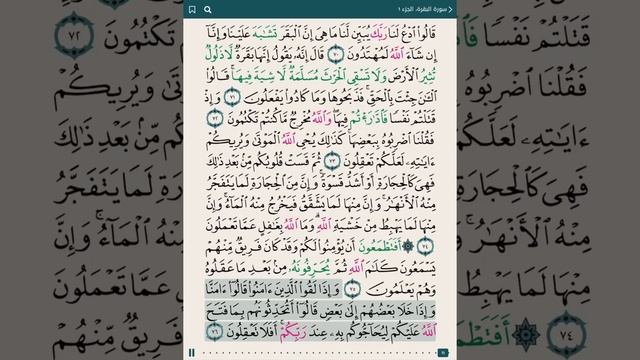 سورة البقرة، الجزء ١
قَالُوا۟ ٱدْعُ لَنَا رَبَّكَ يُبَيِّن لَّنَا مَا هِىَ إِنَّ ٱلْبَقَرَ تَشَٰبَهَ عَلَيْنَا وَإِنَّآ
إِن شَآءَ ٱللَّهُ لَمُهْتَدُونَ ٧٠ قَالَ إِنَّهُۥ يَقُولُ إِنَّهَا بَقَرَةٌ لَّا ذَلُولٌ
تُثِيرُ ٱلْأَرْضَ وَلَا تَسْقِى ٱلْحَرْثَ مُسَلَّمَةٌ لَّا شِيَةَ فِيهَا ۚ قَالُوا۟
ٱلْـَٰٔنَ جِئْتَ بِٱلْحَقِّ ۚ فَذَبَحُوهَا وَمَا كَادُوا۟ يَفْعَلُونَ ٧١ وَإِذْ
قَتَلْتُمْ نَفْسًا فَٱدَّٰرَْٰٔتُمْ فِيهَا ۖ وَٱللَّهُ مُخْرِجٌ مَّا كُنتُمْ تَكْتُمُونَ ٧٢
فَقُلْنَا ٱضْرِبُوهُ بِبَعْضِهَا ۚ كَذَٰلِكَ يُحْىِ ٱللَّهُ ٱلْمَوْتَىٰ وَيُرِيكُمْ
ءَايَٰتِهِۦ لَعَلَّكُمْ تَعْقِلُونَ ٧٣ ثُمَّ قَسَتْ قُلُوبُكُم مِّنۢ بَعْدِ ذَٰلِكَ
فَهِىَ كَٱلْحِجَارَةِ أَوْ أَشَدُّ قَسْوَةً ۚ وَإِنَّ مِنَ ٱلْحِجَارَةِ لَمَا يَتَفَجَّرُ
مِنْهُ ٱلْأَنْهَٰرُ ۚ وَإِنَّ مِنْهَا لَمَا يَشَّقَّقُ فَيَخْرُجُ مِنْهُ ٱلْمَآءُ ۚ وَإِنَّ
مِنْهَا لَمَا يَهْبِطُ مِنْ خَشْيَةِ ٱللَّهِ ۗ وَمَا ٱللَّهُ بِغَٰفِلٍ عَمَّا تَعْمَلُونَ
٧٤ ۞ أَفَتَطْمَعُونَ أَن يُؤْمِنُوا۟ لَكُمْ وَقَدْ كَانَ فَرِيقٌ مِّنْهُمْ
يَسْمَعُونَ كَلَٰمَ ٱللَّهِ ثُمَّ يُحَرِّفُونَهُۥ مِنۢ بَعْدِ مَا عَقَلُوهُ
وَهُمْ يَعْلَمُونَ ٧٥ وَإِذَا لَقُوا۟ ٱلَّذِينَ ءَامَنُوا۟ قَالُوٓا۟ ءَامَنَّا
وَإِذَا خَلَا بَعْضُهُمْ إِلَىٰ بَعْضٍ قَالُوٓا۟ أَتُحَدِّثُونَهُم بِمَا فَتَحَ
ٱللَّهُ عَلَيْكُمْ لِيُحَآجُّوكُم بِهِۦ عِندَ رَبِّكُمْ ۚ أَفَلَا تَعْقِلُونَ ٧٦
١١